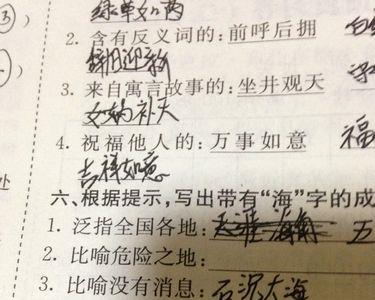 2. 含有反义词的:前呼后拥
辞旧迎新
3. 来自寓言故事的:坐井观天
女娲补天
4. 祝福他人的:万事如意 福
吉祥如意
六、根据提示,写出带有“海”字的成
1. 泛指全国各地:天涯海角 五
2. 比喻危险之地:
3. 比喻没有消息:石沉大海